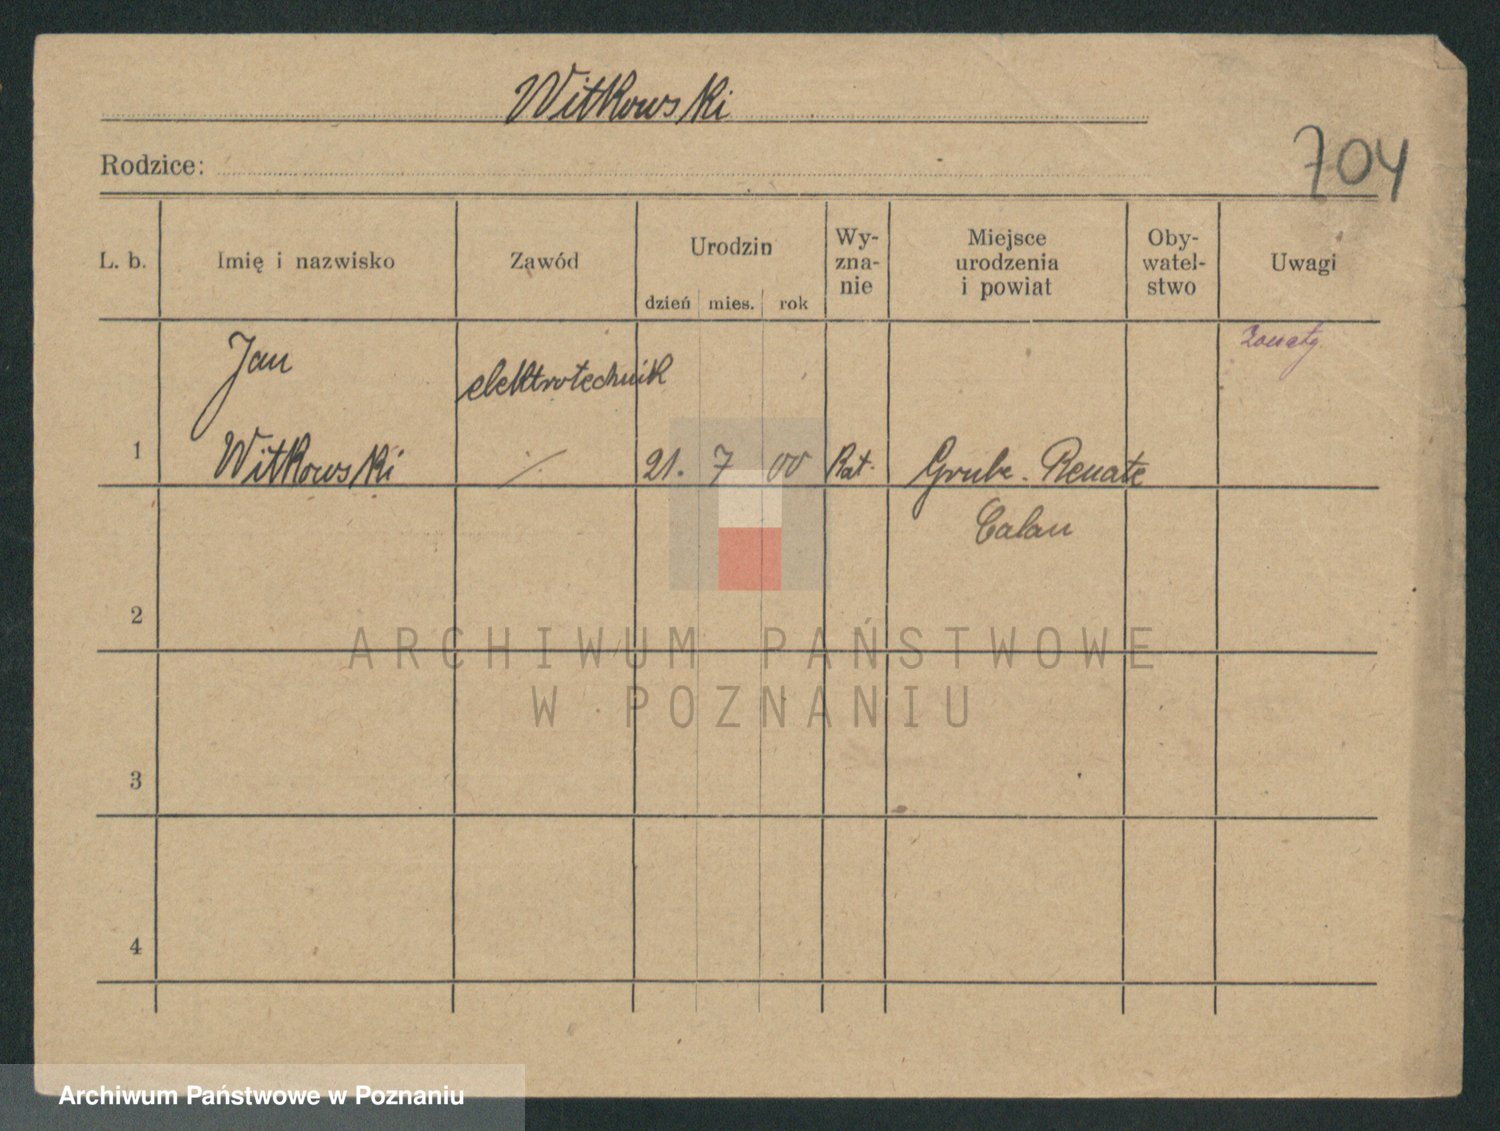 Witkowski
Rodzice:
704
L. b. Imię i nazwisko Zawód Urodzin dzień mies. rok Wy-zna-nie Miejsce urodzenia i powiat Oby-watel-stwo Uwagi
żonaty.
Jan
elektrotechnik
1 Witkowski 21. 7 00 Kat. Grube - Renate
Calau
2
ARCHIWUM PAŃSTWOWE
W POZNANIU
3
4
Archiwum Państwowe w Poznaniu